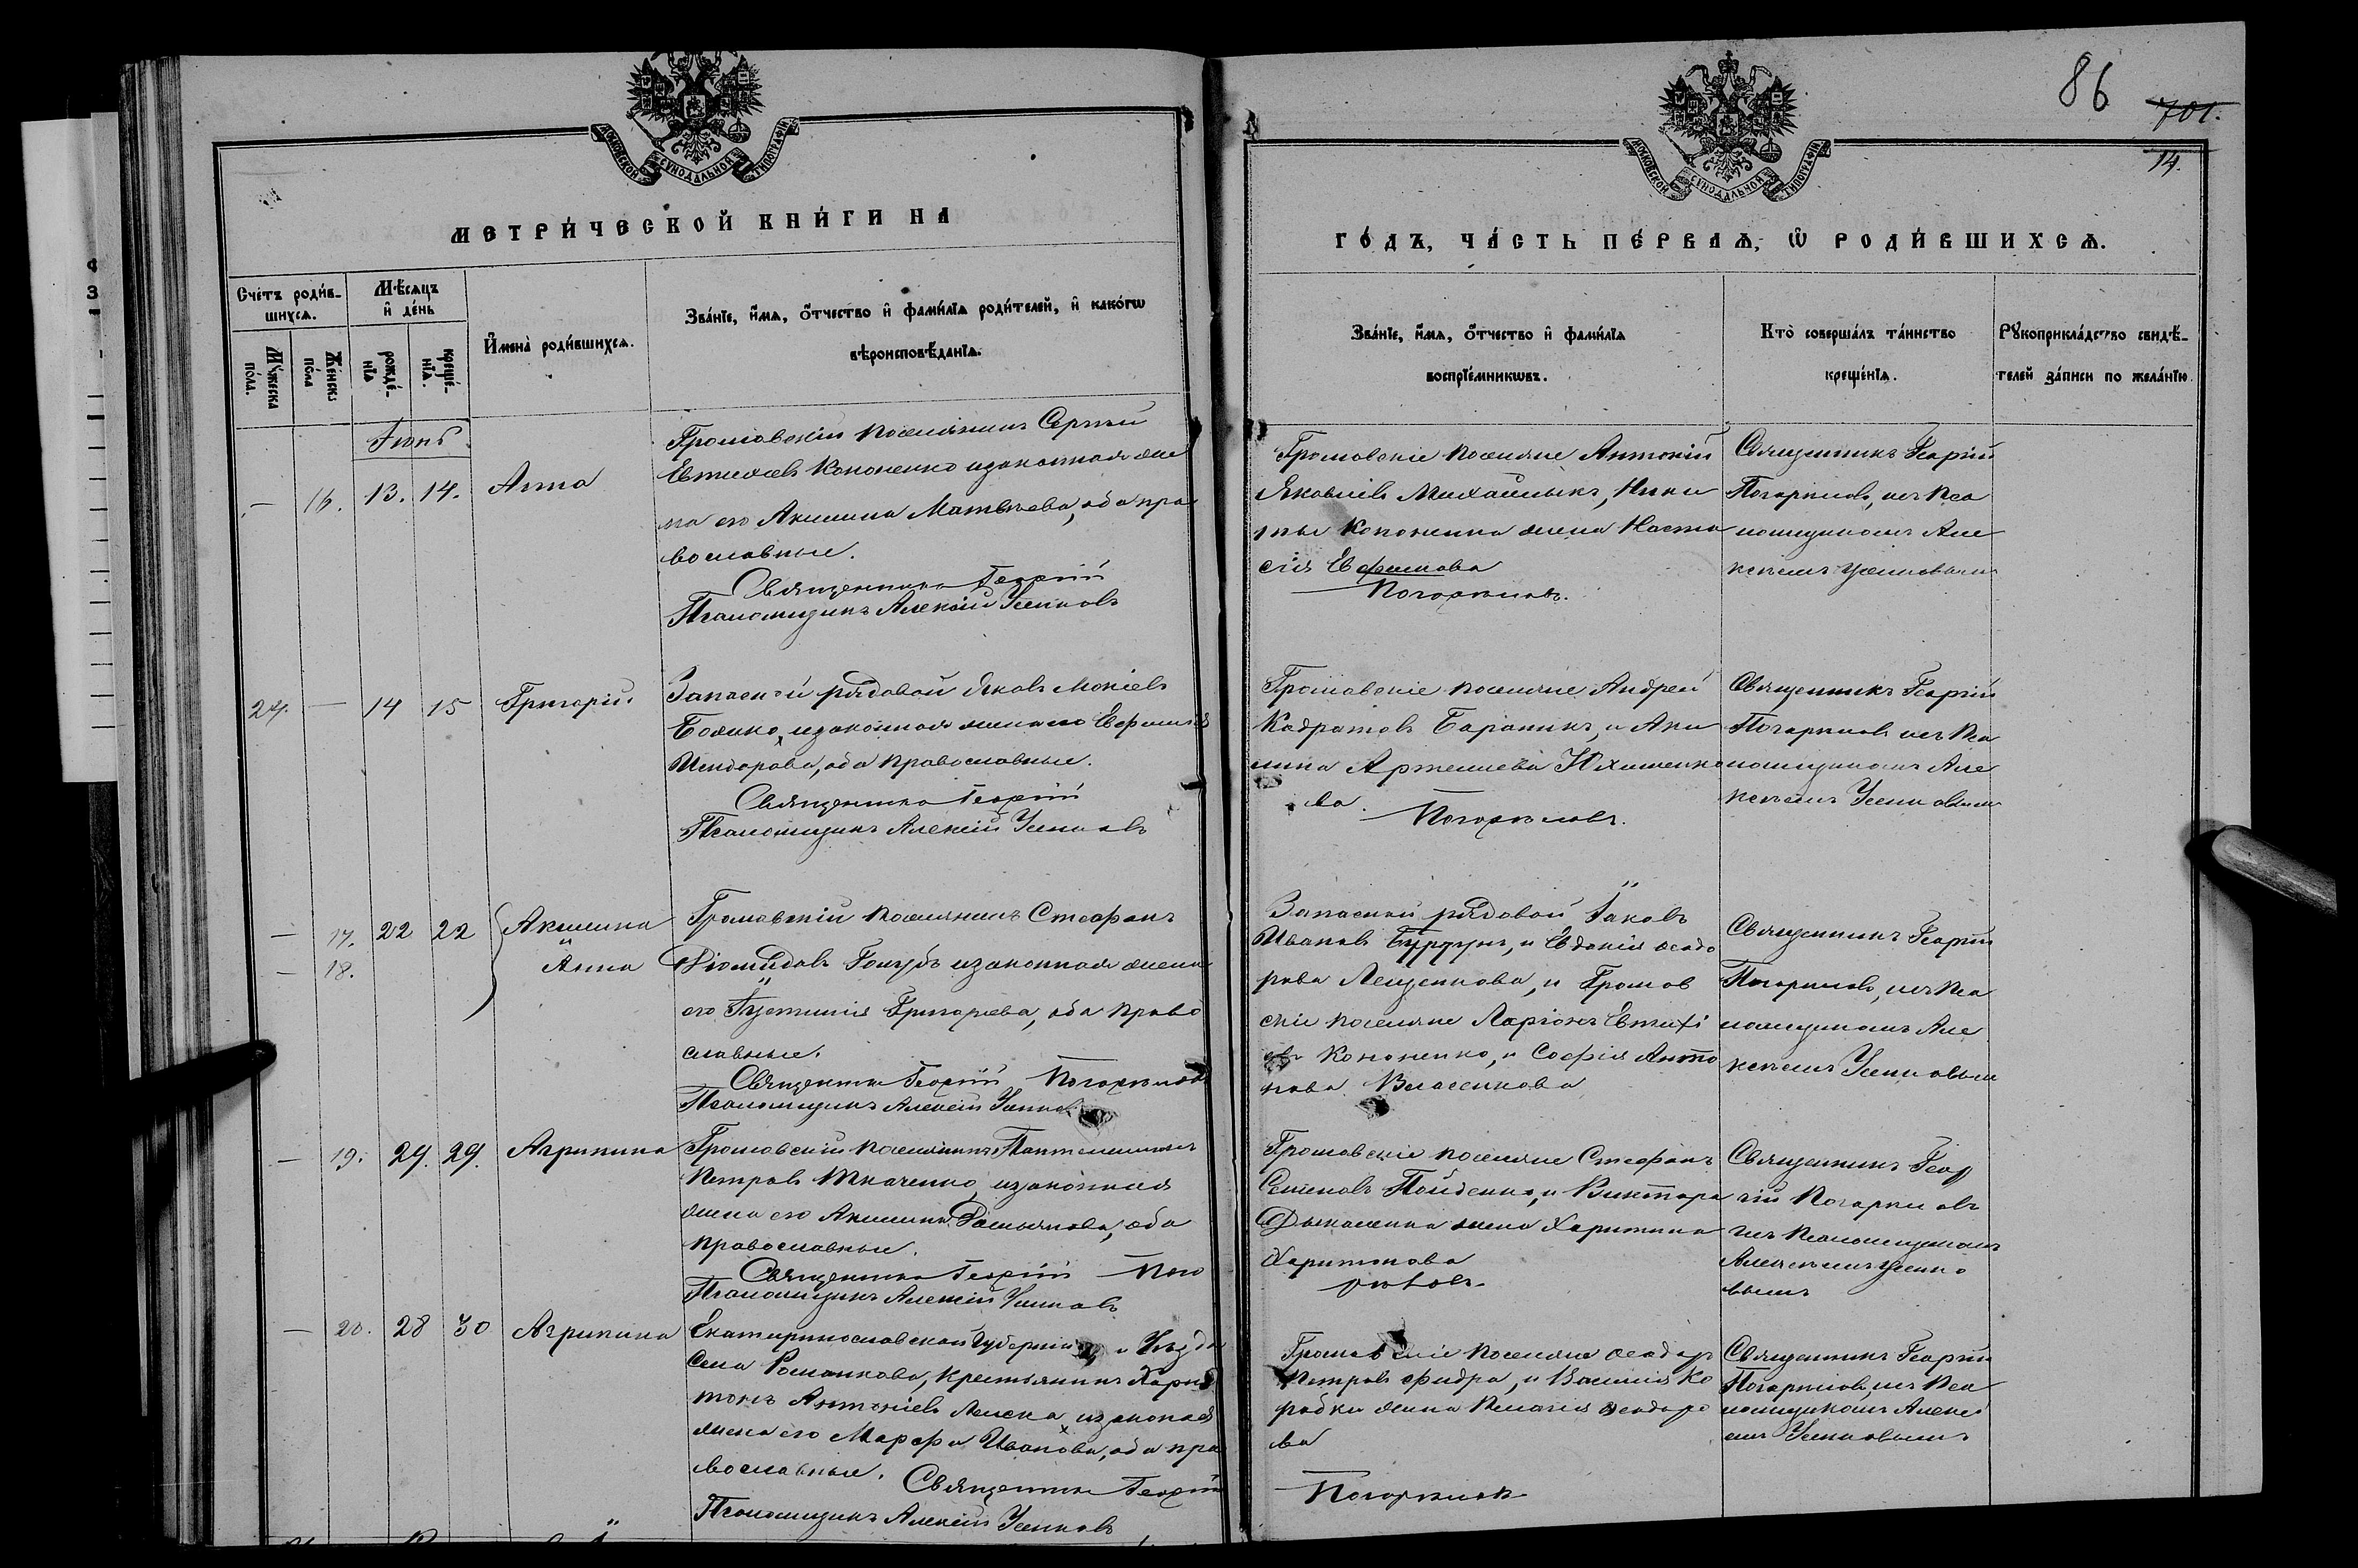 86
701.
14.
МОСКОВСКОЙ СѴНОДАЛЬНОЙ ТИПОГРАФІИ
МОСКОВСКОЙ СѴНОДАЛЬНОЙ ТИПОГРАФІИ
МЕТРИ́ЧЕСКОЙ КНИ́ГИ НА
ГО́ДЪ, ЧА́СТЬ ПЕ́РВАѦ, Ѿ РОДИ́ВШИХСѦ.
Сче́тъ роди́в-
шихсѧ.
Мѣ́сѧцъ
и҆ де́нь
Мꙋ́жеска
по́ла.
Же́нска
по́ла
рожде́-
нїѧ
креще́-
нїѧ.
И҆мена̀ роди́вшихсѧ.
Зва́нїе, и҆́мѧ, ѻ҆́тчество и҆ фами́лїѧ роди́телей, и҆ како́гѡ
вѣроисповѣ́данїѧ.
Зва́нїе, и҆́мѧ, ѻ҆́тчество и҆ фами́лїѧ
воспрїе́мникѡвъ.
Кто̀ соверша́лъ та́инство
креще́нїѧ.
Рꙋкоприкла́дство свидѣ́-
телей за́писи по жела́нїю.
Іюнь
— 16. 13. 14. Анна
Громовскій поселянинъ Сергѣй
Евтихіевъ Кононенко и законная же
на его Акилина Матвѣева, оба пра
вославные.
Священникъ Георгій
Псаломщикъ Алексій Усенковъ
Громовскіе поселяне Антоній
Яковлевъ Михайлыкъ, Ники
Кононенка жена Наста
сія Ефимова
Погорѣловъ.
Священникъ Георгій
Погорѣловъ, съ пса
ломщикомъ Але
ксѣемъ Усенковымъ
24. — 14 15 Григорій
Запасной рядовой Яковъ Мокіевъ
Божко, и законная жена его Ефимія
Исидорова, оба православные.
Священникъ Георгій
Псаломщикъ Алексій Усенковъ
Громовскіе поселяне Андрей
Кодратовъ Бараникъ, и Аки
лина Артемиева Юхименко
ва.
Погорѣловъ.
Священникъ Георгій
Погорѣловъ съ пса
ломщикомъ Але
ксѣемъ Усенковымъ
— 17. 22 22 Акилина
и
— 18. Анна
Громовскій поселянинъ Стефанъ
Діомидовъ Голубъ и законная жена
его Іустинія Григорьева, оба право
славные.
Священникъ Георгій Погорѣловъ
Псаломщикъ Алексій Усенковъ
Запасной рядовой Іаковъ
Ивановъ, и Евдокія Ѳеодо
рова Лещенкова, и Громов
скіе поселяне Ларіонъ Евтихі
евъ Кононенко, и Софія Анто
нова Власенкова
Священникъ Георгій
Погорѣловъ, съ пса
ломщикомъ Але
ксѣемъ Усенковым
— 19. 29. 29. Агрипина
Громовскій поселянинъ Пантелеимонъ
Петровъ Ткаченко, и законная
жена его Акилина Дамьянова, оба
православные.
Священникъ Георгій Пого
Псаломщикъ Алексій Усенковъ
Громовскіе поселяне Стефанъ
Семеновъ, и Виктора
жена Харитина
Харитонова
рѣловъ
Священникъ Геор
гій Погорѣловъ
съ псаломщикомъ
Алексѣемъ Усенко
вымъ
— 20. 28 30 Агрипина
Екатеринославской Губерніи, и Уѣзда
Села Романкова, крестьянинъ Хари
тонъ Антоніевъ, и законная
жена его Марѳа Иванова, оба пра
вославные. Священникъ Георгій
Псаломщикъ Алексій Усенковъ
Громовскіе поселяне Ѳеодоръ
Петровъ, и Василія Ко
робки жена Пелагія Ѳеодоро
ва
Погорѣловъ
Священникъ Георгій
Погорѣловъ, съ пса
ломщикомъ Алексѣ
емъ Усенковымъ